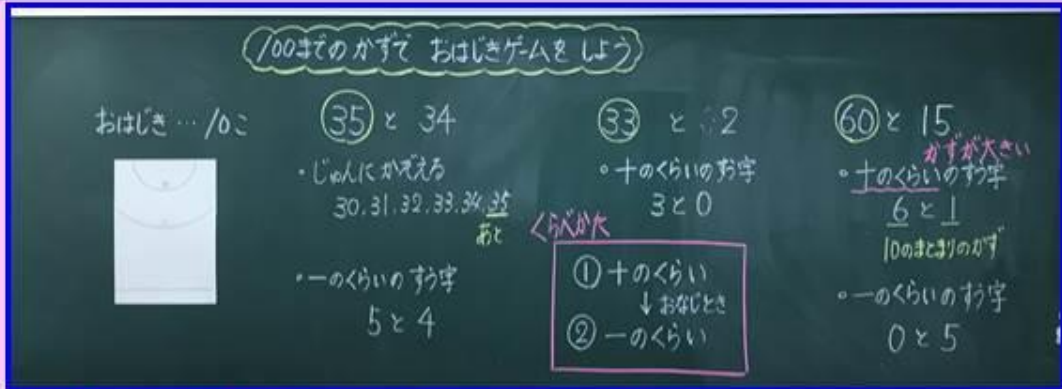 100までのかずで おはじきゲームを しよう
おはじき…10こ
35と 34
・じゅんにかぞえる
30.31.32.33.34.35
あと
・一のくらいの すう字
5と4
33 と 2
・十のくらいのすう字
3と0
くらべかた
①十のくらい
↓おなじとき
②一のくらい
60と 15
かずが大きい
・十のくらいのすう字
6と1
10のまとまりのかず
・一のくらいのすう字
0と5